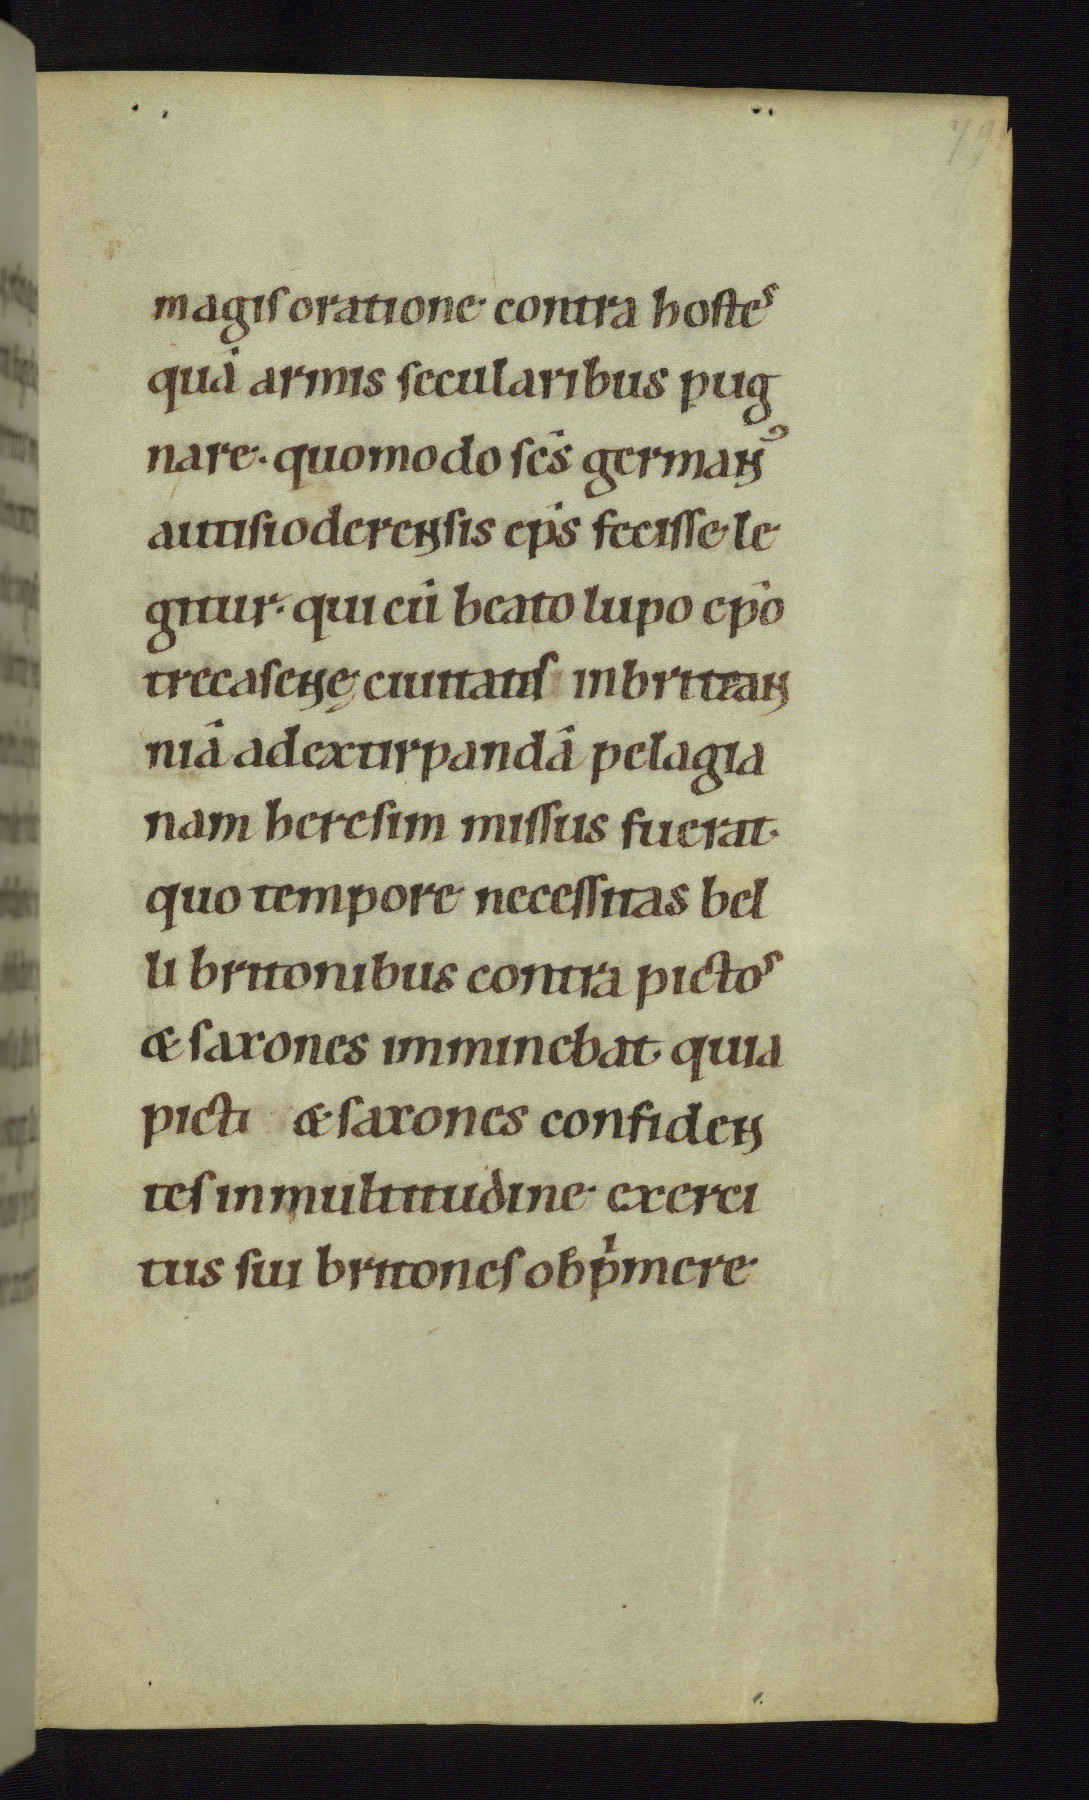 79
magiſ oratione contra hoſtes
quā armis ſecularibus pug
nare. quomodo ſc̄s german᾿
autiſioderenſis ep̄s feciſſe le
gitur. qui cū beato lupo ep̄o
trecaſenę ciuitatiſ in brittan
niā ad extirpandā pelagia
nam hereſim miſſus fuerat.
quo tempore neceſſitas bel
li britonibus contra pictos
& ſaxones imminebat. quia
picti & ſaxones confiden
teſ in multitudine exerci
tus ſui britoneſ obp̍mere